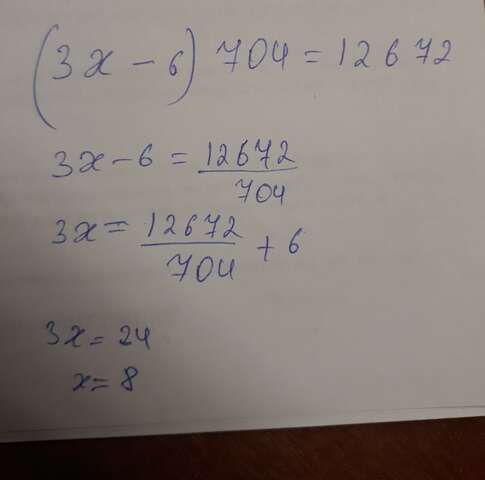 (3x - 6) 704 = 12672
3x - 6 = 12672/704
3x = 12672/704 + 6
3x = 24
x = 8